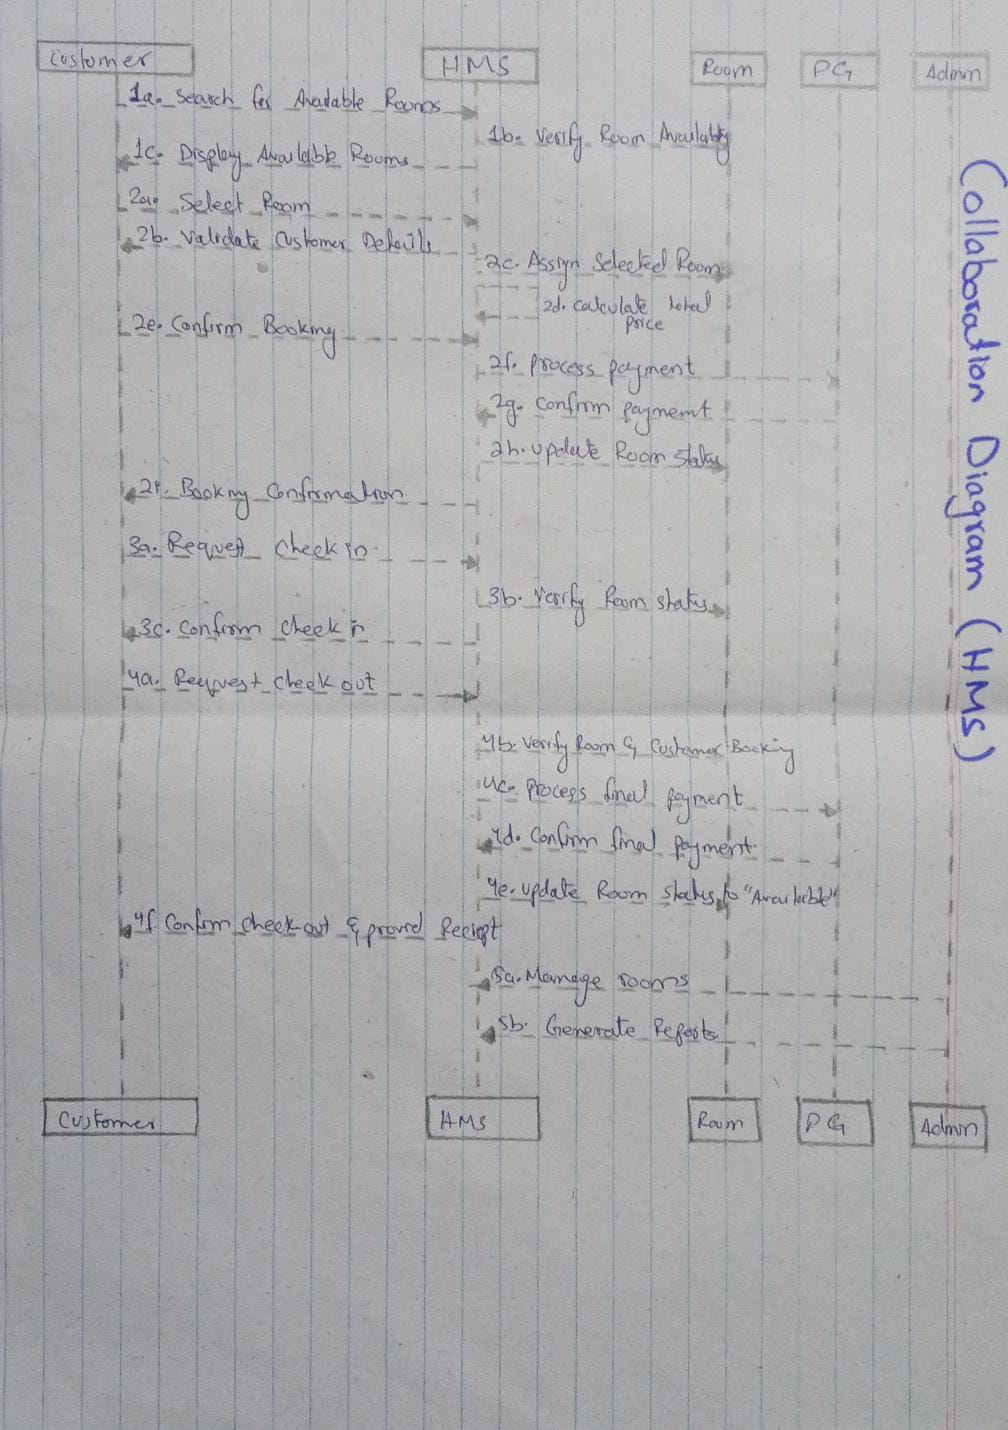 Customer HMS Room PG Admin
1a. Search for Available Rooms
1b. Verify Room Availabity
1c. Display Available Rooms
2a. Select Room
2b. Validate Customer Details
2c. Assign Selected Room
2d. calculate total
price
2e. Confirm Booking
2f. process payment
2g. Confirm payment
2h. update Room status
2i. Booking Confirmation
3a. Request check in
3b. Verify Room status
3c. Confirm check in
4a. Request check out
4b. Verify Room & Customer Booking
4c. process final payment
4d. Confirm final payment
4e. update Room status to "Available"
4f. Confirm check out & provid Reciept
5a. Manage rooms
5b. Generate Reports
Customer HMS Room PG Admin
Collaboration Diagram (HMS)